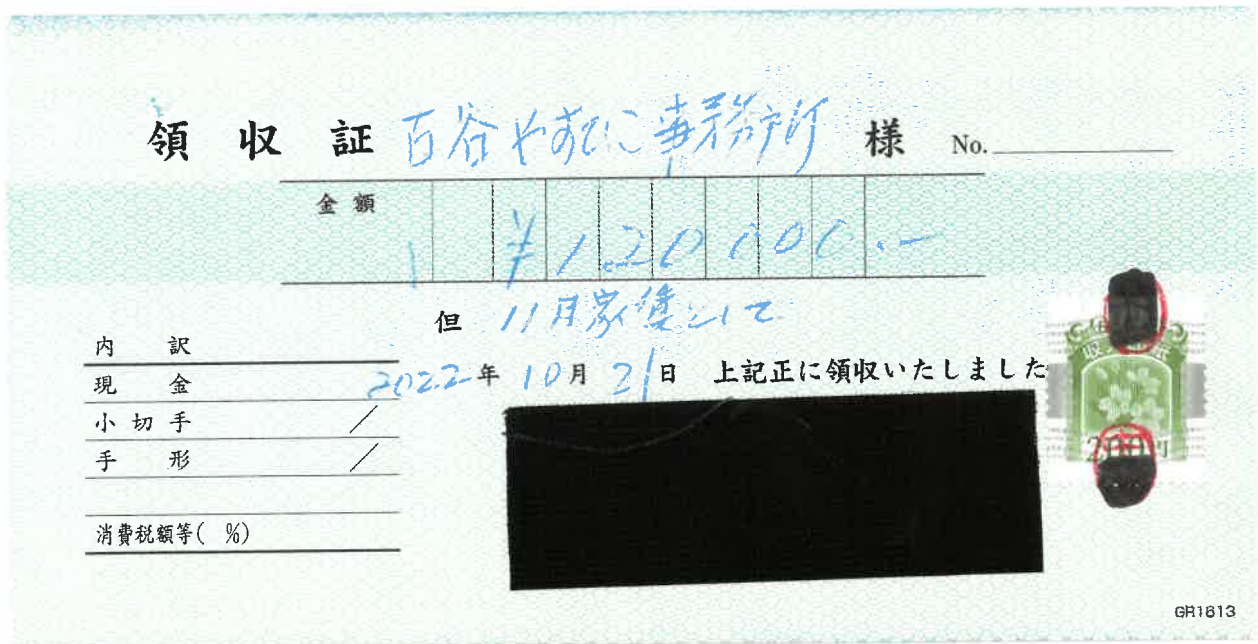 領収証 百谷やすひこ事務所 様 No.
金額
¥120000.-
但 11月家賃として
内訳
2022年10月21日 上記正に領収いたしました
現金
小切手 /
手形 /
消費税額等( %)
200円
GR1613